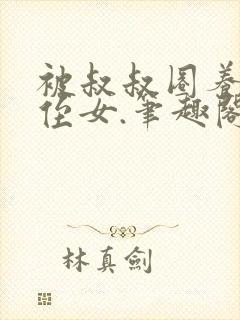 被叔叔圈养
侄女.笔趣阁
林真剑